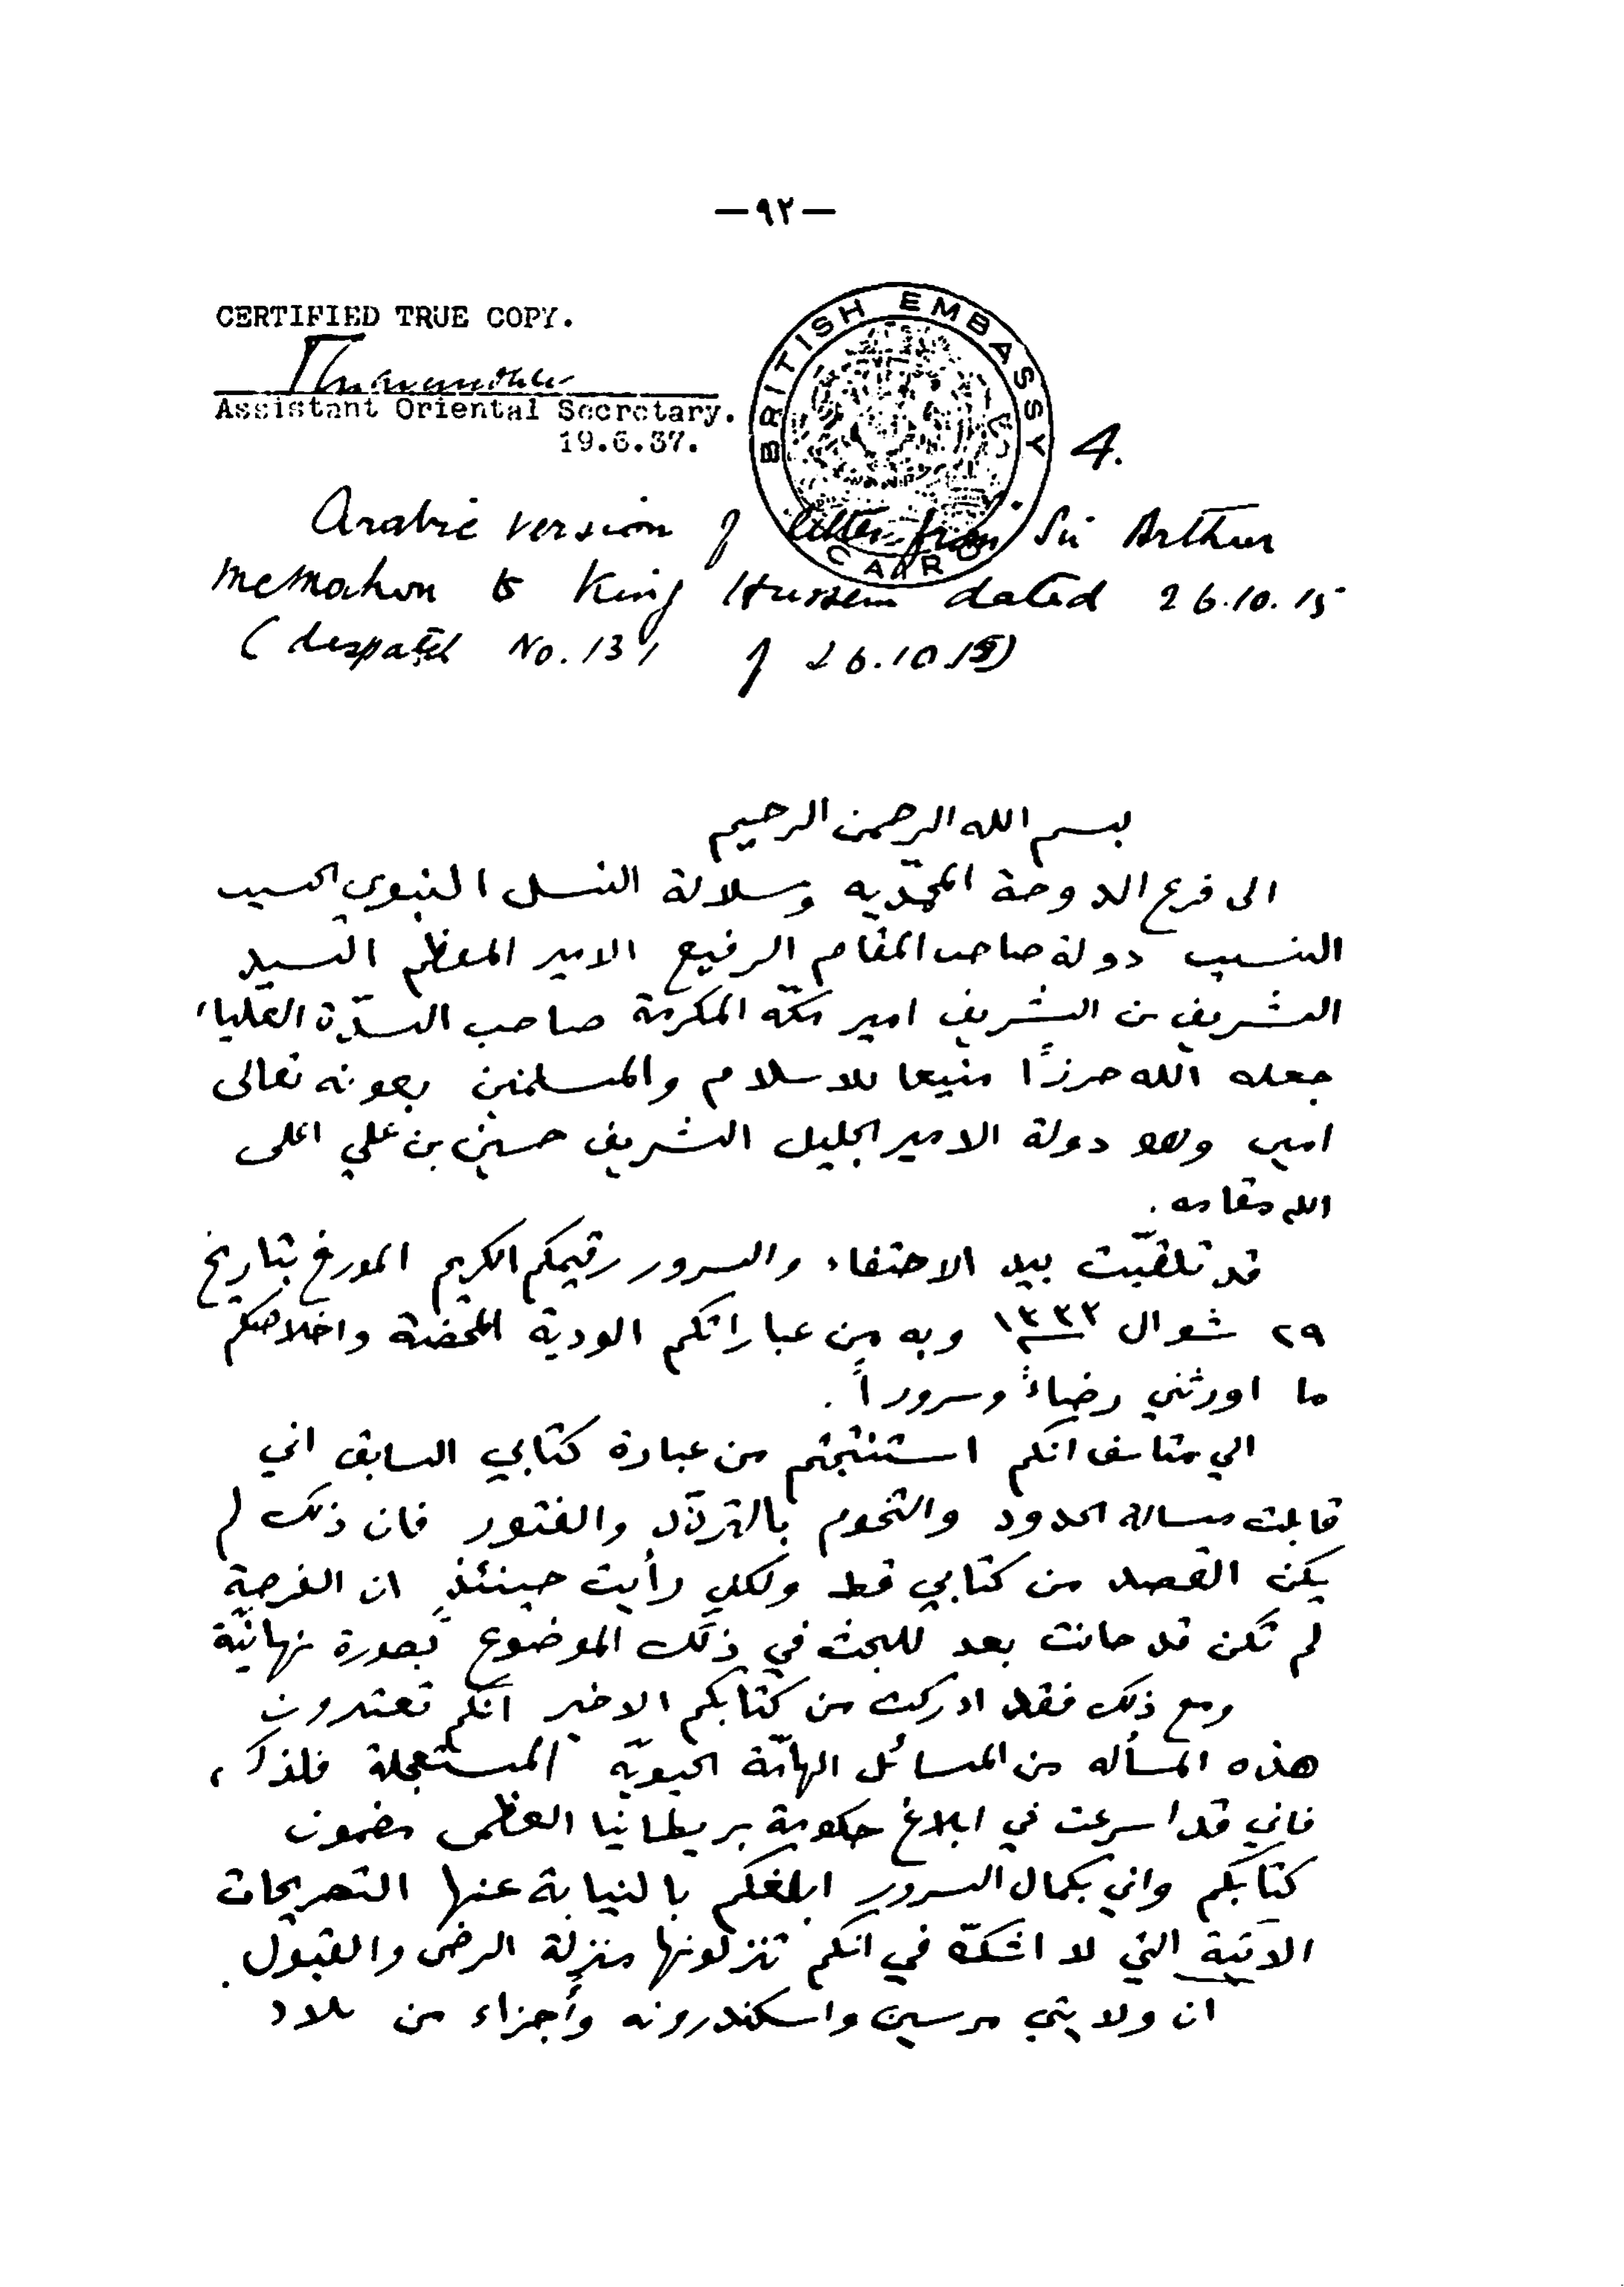 —٩٢—
CERTIFIED TRUE COPY.
Assistant Oriental Secretary.
19.6.37.
BRITISH EMBASSY
CAIRO
4.
Arabic version of letter from Sir Arthur
McMahon to King Hussein dated 26.10.15
(despatch No. 131 of 26.10.15)
بسم الله الرحمن الرحيم
الى فرع الدوحة المحمّديه وسلالة النسل النبوي الحسيب
النسيب دولة صاحب المقام الرفيع الامير المعظم السيد
الشريف بن الشريف امير مكّه المكرمة صاحب السدّة العلياء
جعله الله حرزًا منيعا للاسلام والمسلمين بعونه تعالى
امين وهو دولة الامير الجليل الشريف حسين بن علي اعلى
الله مقامه .
قد تلقيّت بيد الاحتفاء والسرور رقيمكم الكريم المورخ بتاريخ
٢٩ شوال ١٣٣٣ وبه من عباراتكم الودية المحضة واخلاصكم
ما اورثني رضاءً وسروراً .
اني متاسف انكم استنتجتم من عبارة كتابي السابق اني
قابلت مسالة الحدود والتخوم بالتردّد والفتور فان ذلك لم
يكن القصد من كتابي قط ولكني رأيت حينئذٍ ان الفرصة
لم تكن قد حانت بعد للبحث في ذلك الموضوع بصورة نهائيّة
ومع ذلك فقد ادركت من كتابكم الاخير انكم تعتبرون
هذه المسأله من المسائل الهامّة الحيويّه المستعجلة فلذا
فاني قد اسرعت في ابلاغ حكومة بريطانيا العظمى مضمون
كتابكم واني بكمال السرور ابلغكم بالنيابة عنها التصريحات
الاتية التي لا اشكّ في انكم تنزلونها منزلة الرضى والقبول .
ان ولايتي مرسين واسكندرونه وأجزاء من بلاد